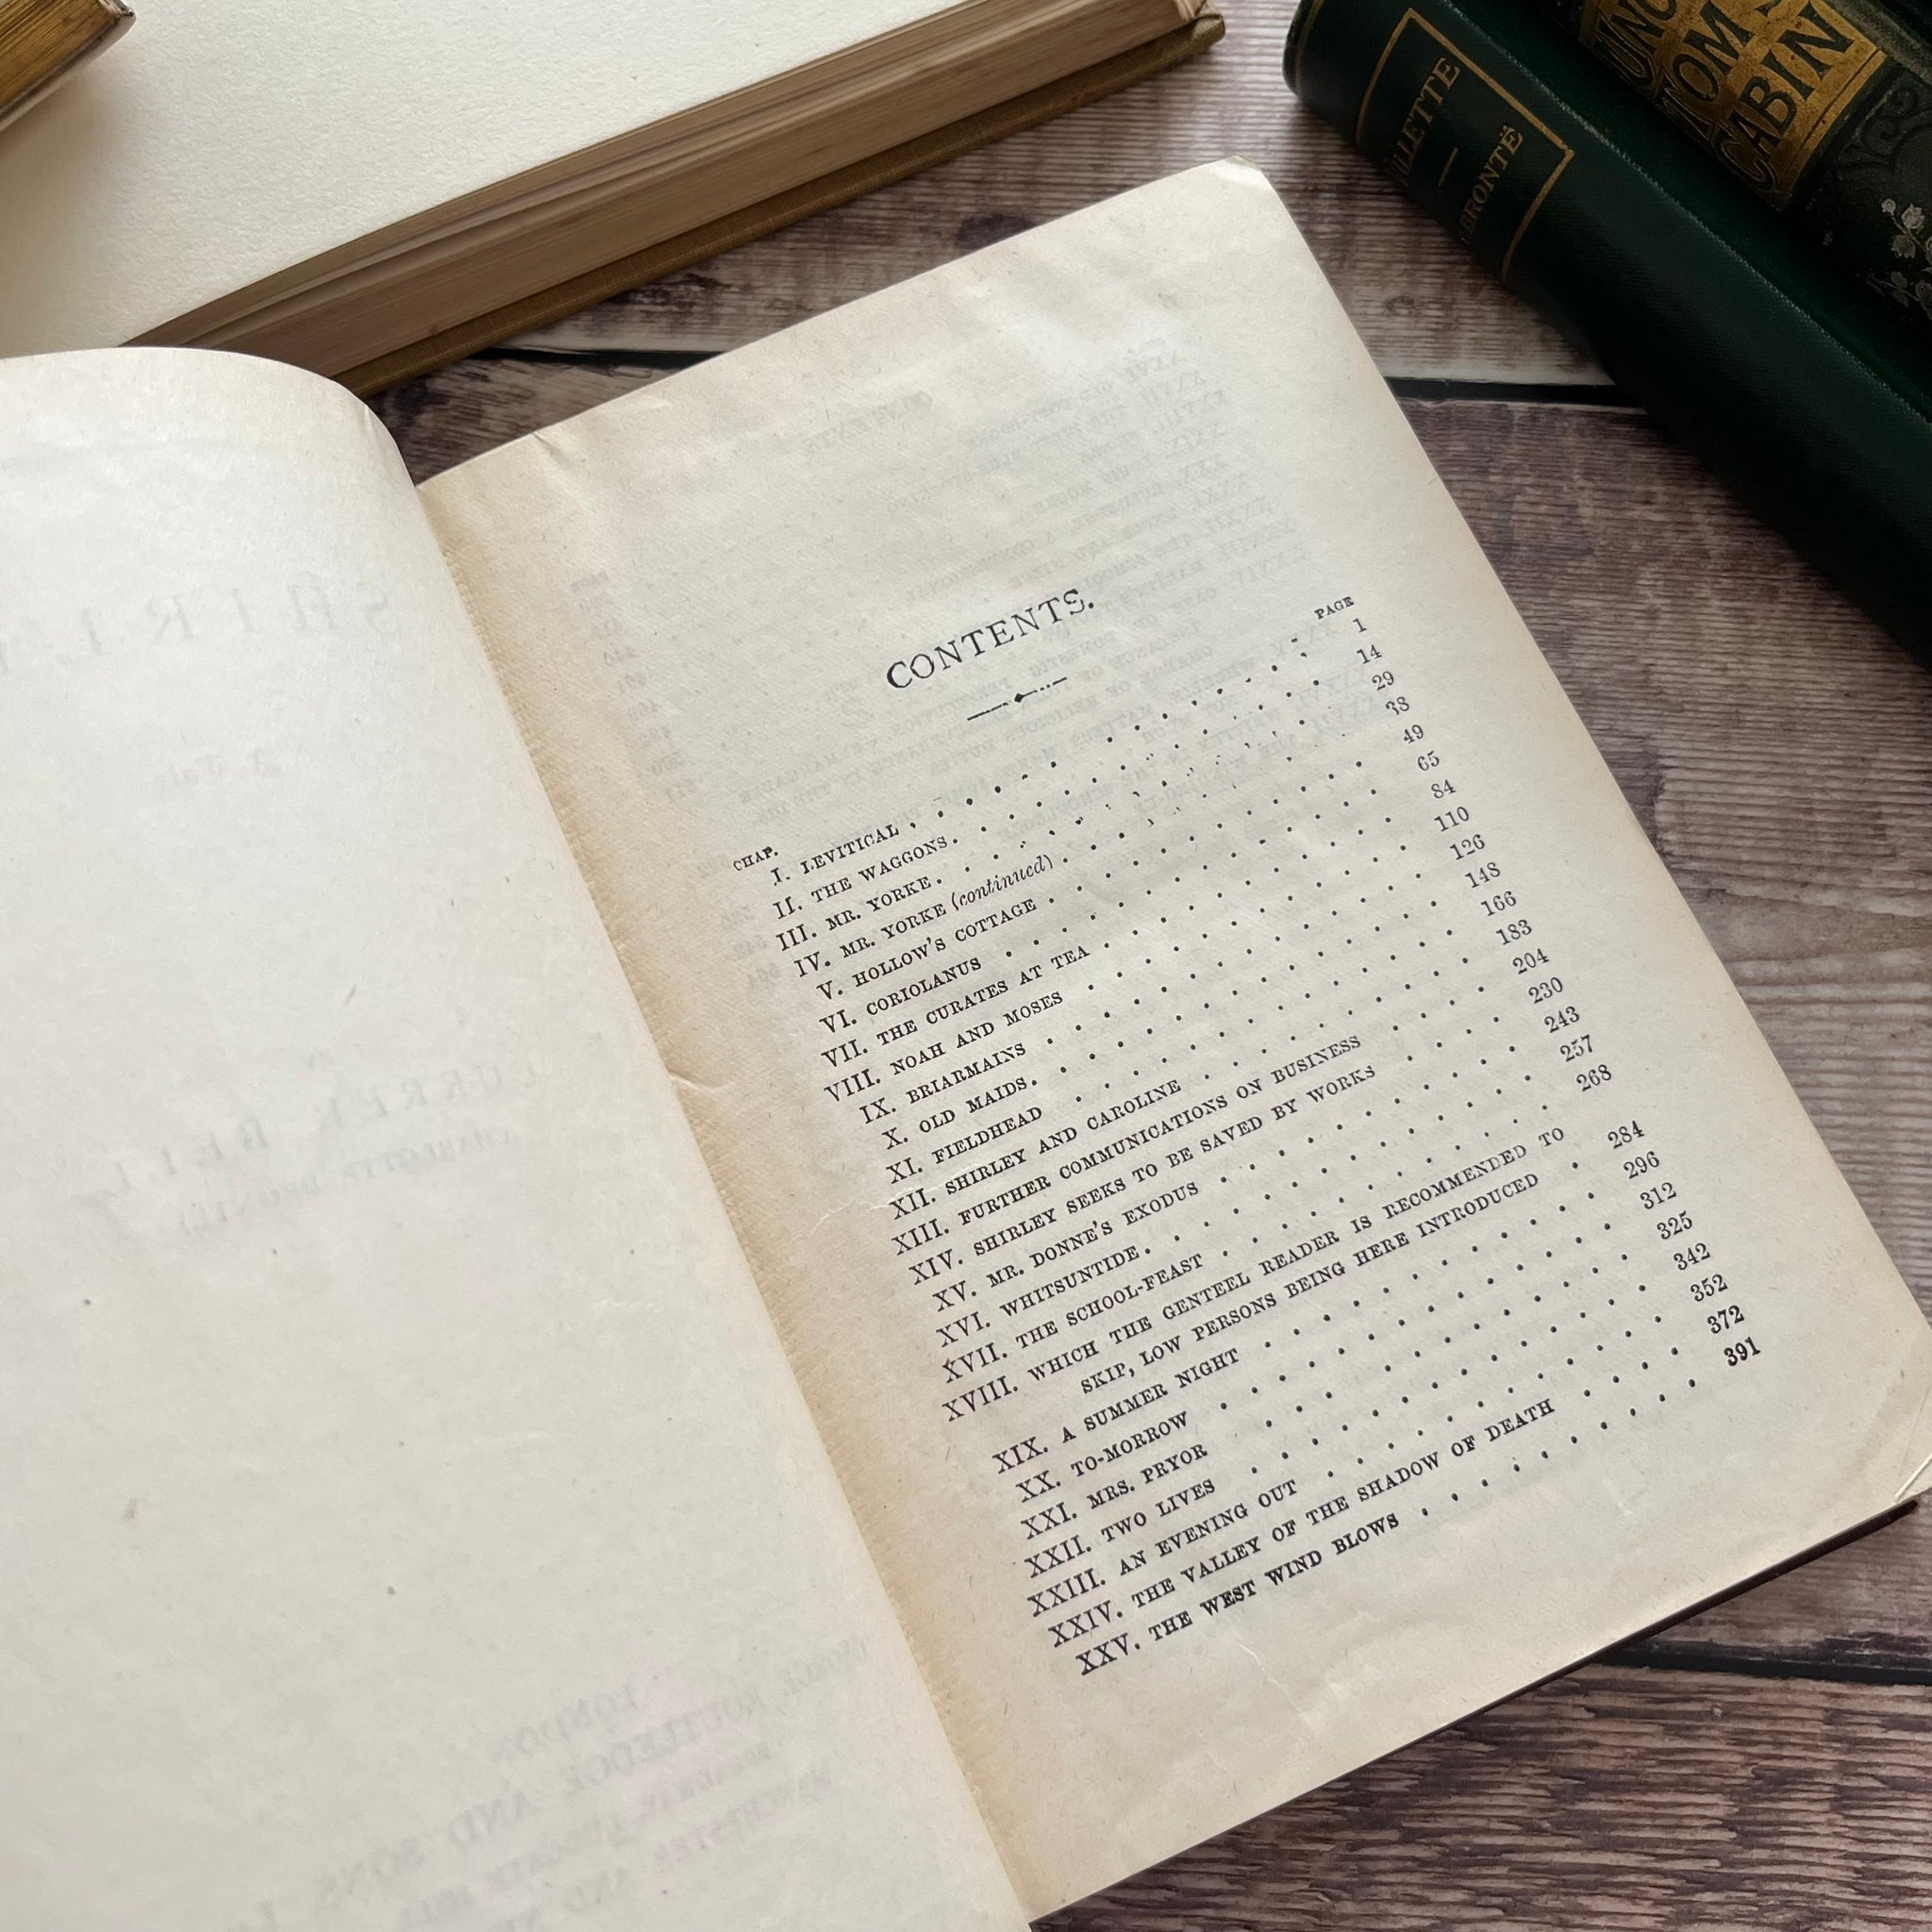 ILLETTE
BRONTË
UNC
TOM'S
CABIN
CONTENTS.
CHAP. PAGE
I. LEVITICAL . . . . . . . . . . 1
II. THE WAGGONS . . . . . . . . . . 14
III. MR. YORKE . . . . . . . . . . 29
IV. MR. YORKE (continued) . . . . . . . . 38
V. HOLLOW'S COTTAGE . . . . . . . . 49
VI. CORIOLANUS . . . . . . . . . 65
VII. THE CURATES AT TEA . . . . . . . 84
VIII. NOAH AND MOSES . . . . . . . . 110
IX. BRIARMAINS . . . . . . . . . 126
X. OLD MAIDS . . . . . . . . . . 148
XI. FIELDHEAD . . . . . . . . . 166
XII. SHIRLEY AND CAROLINE . . . . . . . 183
XIII. FURTHER COMMUNICATIONS ON BUSINESS . . . . 204
XIV. SHIRLEY SEEKS TO BE SAVED BY WORKS . . . . 230
XV. MR. DONNE'S EXODUS . . . . . . . 243
XVI. WHITSUNTIDE . . . . . . . . . 257
XVII. THE SCHOOL-FEAST . . . . . . . . 268
XVIII. WHICH THE GENTEEL READER IS RECOMMENDED TO
SKIP, LOW PERSONS BEING HERE INTRODUCED . 284
XIX. A SUMMER NIGHT . . . . . . . . 296
XX. TO-MORROW . . . . . . . . . 312
XXI. MRS. PRYOR . . . . . . . . . 325
XXII. TWO LIVES . . . . . . . . . 342
XXIII. AN EVENING OUT . . . . . . . . 352
XXIV. THE VALLEY OF THE SHADOW OF DEATH . . . . 372
XXV. THE WEST WIND BLOWS . . . . . . . 391